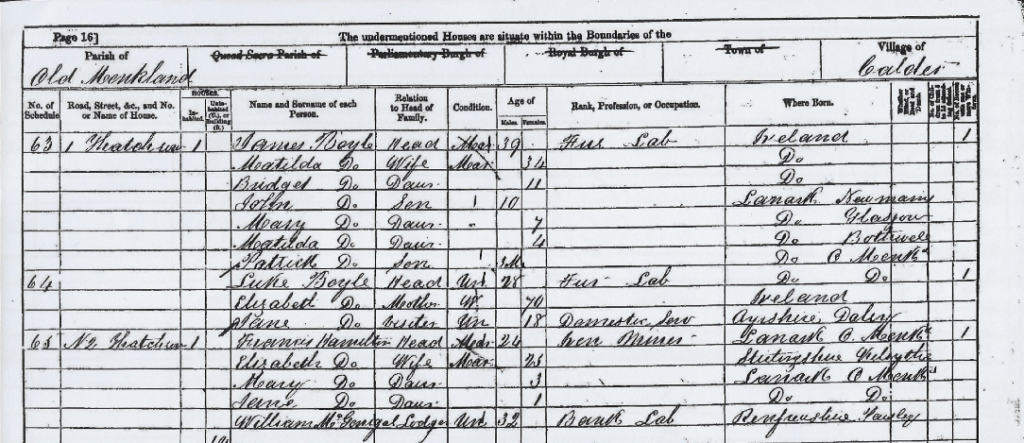 Page 16] The undermentioned Houses are situate within the Boundaries of the
Parish of Quoad Sacra Parish of Parliamentary Burgh of Royal Burgh of Town of Village of
Old Monkland Calder
No. of Schedule Road, Street, &c., and No. or Name of House. HOUSES. Inhabited. Uninhabited (U.), or Building (B.) Name and Surname of each Person. Relation to Head of Family. Condition. Age of Males. Females. Rank, Profession, or Occupation. Where Born.
63 1 1 James Boyle Head Mar 39 Fur Lab Ireland 1
Matilda Do Wife Mar 34 Do
Bridget Do Daur 11 Do
John Do Son 10 Lanark
Mary Do Daur 7 Do Glasgow
Matilda Do Daur 4 Do Bothwell
Patrick Do Son 3M Do O Monkd
64 Luke Boyle Head Un 28 Fur Lab Do Do 1
Elizabeth Do Mother W. 70 Ireland
Jane Do Visiter Un 18 Domestic Serv Ayrshire Dalry
65 No 2 1 Francis Hamilton Head Mar 24 Iron Miner Lanark O. Monkd 1
Elizabeth Do Wife Mar 25 Stirlingshire Kilsythe
Mary Do Daur 3 Lanark O Monkd
Do Daur 1 Do Do
William Lodger Un 32 Bank Lab Renfrewshire Paisley